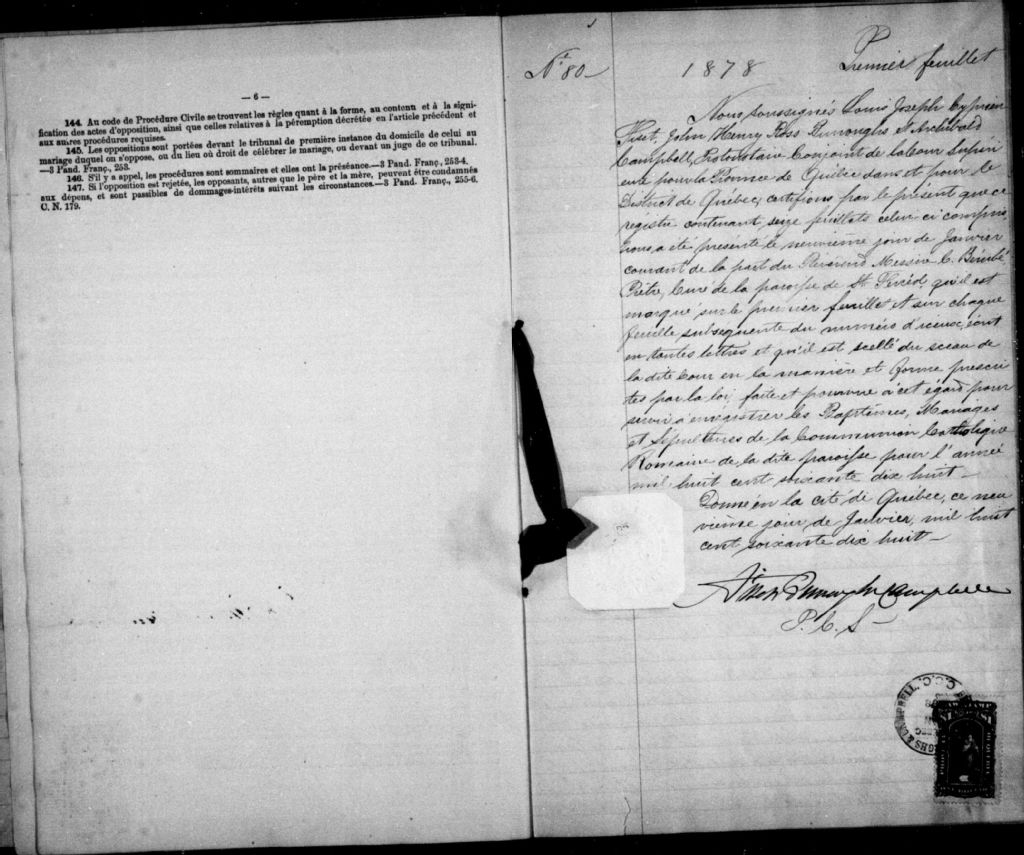 — 6 —
144. Au code de Procédure Civile se trouvent les règles quant à la forme, au contenu et à la signi-
fication des actes d'opposition, ainsi que celles relatives à la péremption décrétée en l'article précédent et
aux autres procédures requises.
145. Les oppositions sont portées devant le tribunal de première instance du domicile de celui au
mariage duquel on s'oppose, ou du lieu où droit de célébrer le mariage, ou devant un juge de ce tribunal.
—3 Pand. Franç., 253.
146. S'il y a appel, les procédures sont sommaires et elles ont la préséance.—3 Pand. Franç., 253-4.
147. Si l'opposition est rejetée, les opposants, autres que le père et la mère, peuvent être condamnés
aux dépens, et sont passibles de dommages-intérêts suivant les circonstances.—3 Pand. Franç., 255-6.
C. N. 179.
No 80—
1878
Premier feuillet
Nous soussignés Louis Joseph Cyprien
Fiset, John Henry Ross Burroughs & Archibald
Campbell, Protonotaire Conjoint de la Cour Supéri
eure pour la Province de Québec dans et pour le
District de Québec, certifions par le présent que ce
registre contenant seize feuillets celui-ci compris
nous a été présenté le neuvième jour de Janvier
courant de la part du Révérend Messire C. Bérubé
Prêtre, Curé de la paroisse de St. qu'il est
marqué sur le premier feuillet et sur chaque
feuille subséquente du numéro d'iceux, écrit
en toutes lettres et qu'il est scellé du sceau de
la dite Cour en la manière et forme prescri
tes par la loi, faite et pourvue à cet égard pour
servir à enregistrer les Baptêmes, Mariages
et Sépultures de la Communion Catholique
Romaine de la dite paroisse pour l'année
mil huit cent soixante dix huit—
Donné en la cité de Québec, ce neu
vième jour de Janvier, mil huit
cent soixante dix huit—
Fiset Burroughs Campbell
P. C. S—